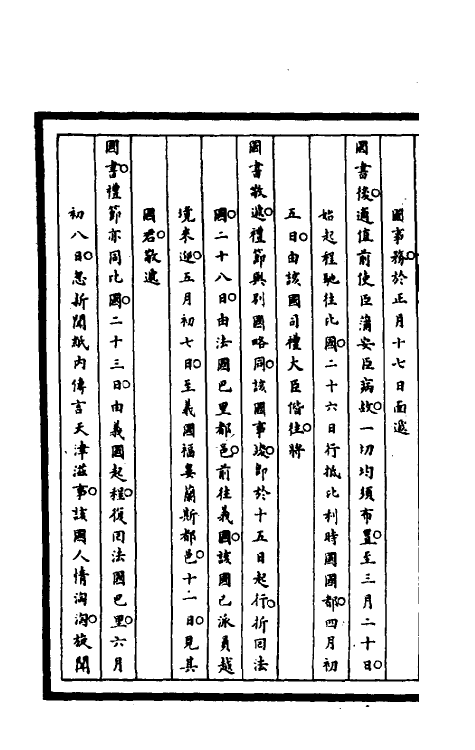 國事務於正月十七日面遞
國書後適值前使臣蒲安臣病故一切均須布置至三月二十日
始起程馳往比國二十六日行抵比利時國國都四月初
五日由該國司禮大臣偕往將
國書敬遞禮節與別國略同該國事竣即於十五日起行折回法
國二十八日由法國巴里都邑前往義國該國已派員越
境來迎五月初七日至義國福婁蘭斯都邑十一日見其
國君敬遞
國書禮節亦同比國二十三日由義國起程復回法國巴里六月
初八日忽新聞紙內傳言天津滋事該國人情洶洶旋聞